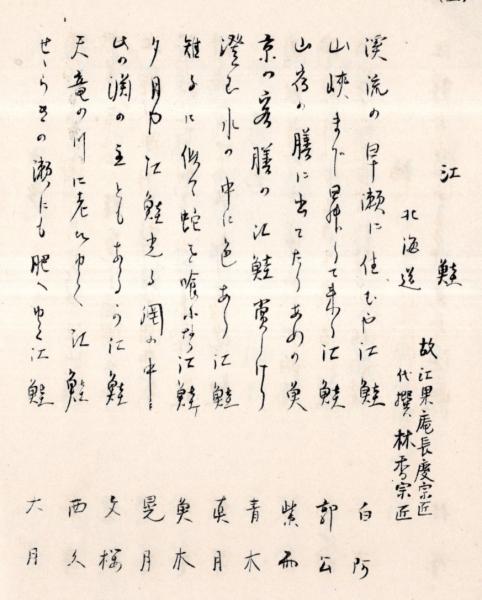 江鮭
北海道
故江果庵長慶宗匠
代撰林秀宗匠
渓流の早瀬に住むや江鮭 白阿
山峡まで昇りて来る江鮭 郭公
山宿の膳に出てたりあめの魚 紫雨
京の客膳の江鮭賞しけり 青木
澄む水の中に色あり江鮭 真月
雉子に似て蛇を喰ふなり江鮭 魚木
夕月や江鮭光る網の中 晃月
此の渕の主ともあらう江鮭 文桜
天竜の川に老いゆく江鮭 西久
せゝらぎの瀬にも肥へゆく江鮭 大月